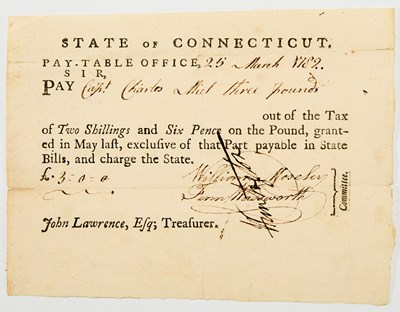 STATE OF CONNECTICUT.
PAY-TABLE OFFICE, 25 March 1782.
SIR,
PAY Capt Charles three pounds
out of the Tax
of Two Shillings and Six Pence on the Pound, grant-
ed in May last, exclusive of that Part payable in State
Bills, and charge the State.
£.3-0-0
William Moseley
Fenn Wadsworth
Committee.
John Lawrence, Esq; Treasurer.